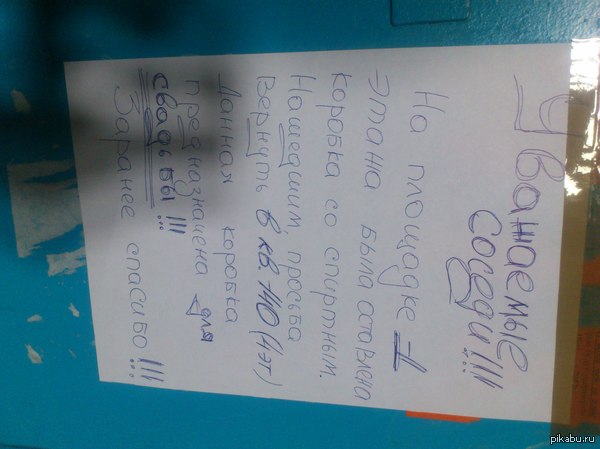 Уважаемые
Соседи!!!
На площадке 1
этажа была оставлена
коробка со спиртным.
Нашедшим, просьба
Вернуть в кв. 140 (4эт)
Данная коробка
предназначена для
свадьбы!!!
Заранее спасибо!!!
pikabu.ru